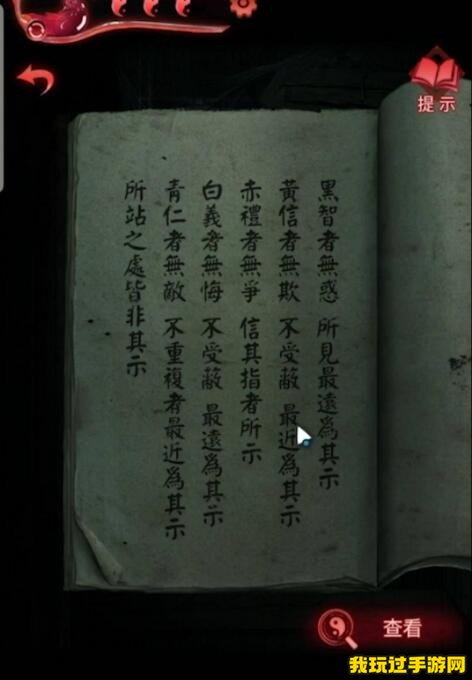 提示
黑智者無惑 所見最遠為其示
黃信者無欺 不受蔽 最近為其示
赤禮者無爭 信其指者所示
白義者無悔 不受蔽 最遠為其示
青仁者無敵 不重複者最近為其示
所站之處皆非其示
查看
我玩过手游网